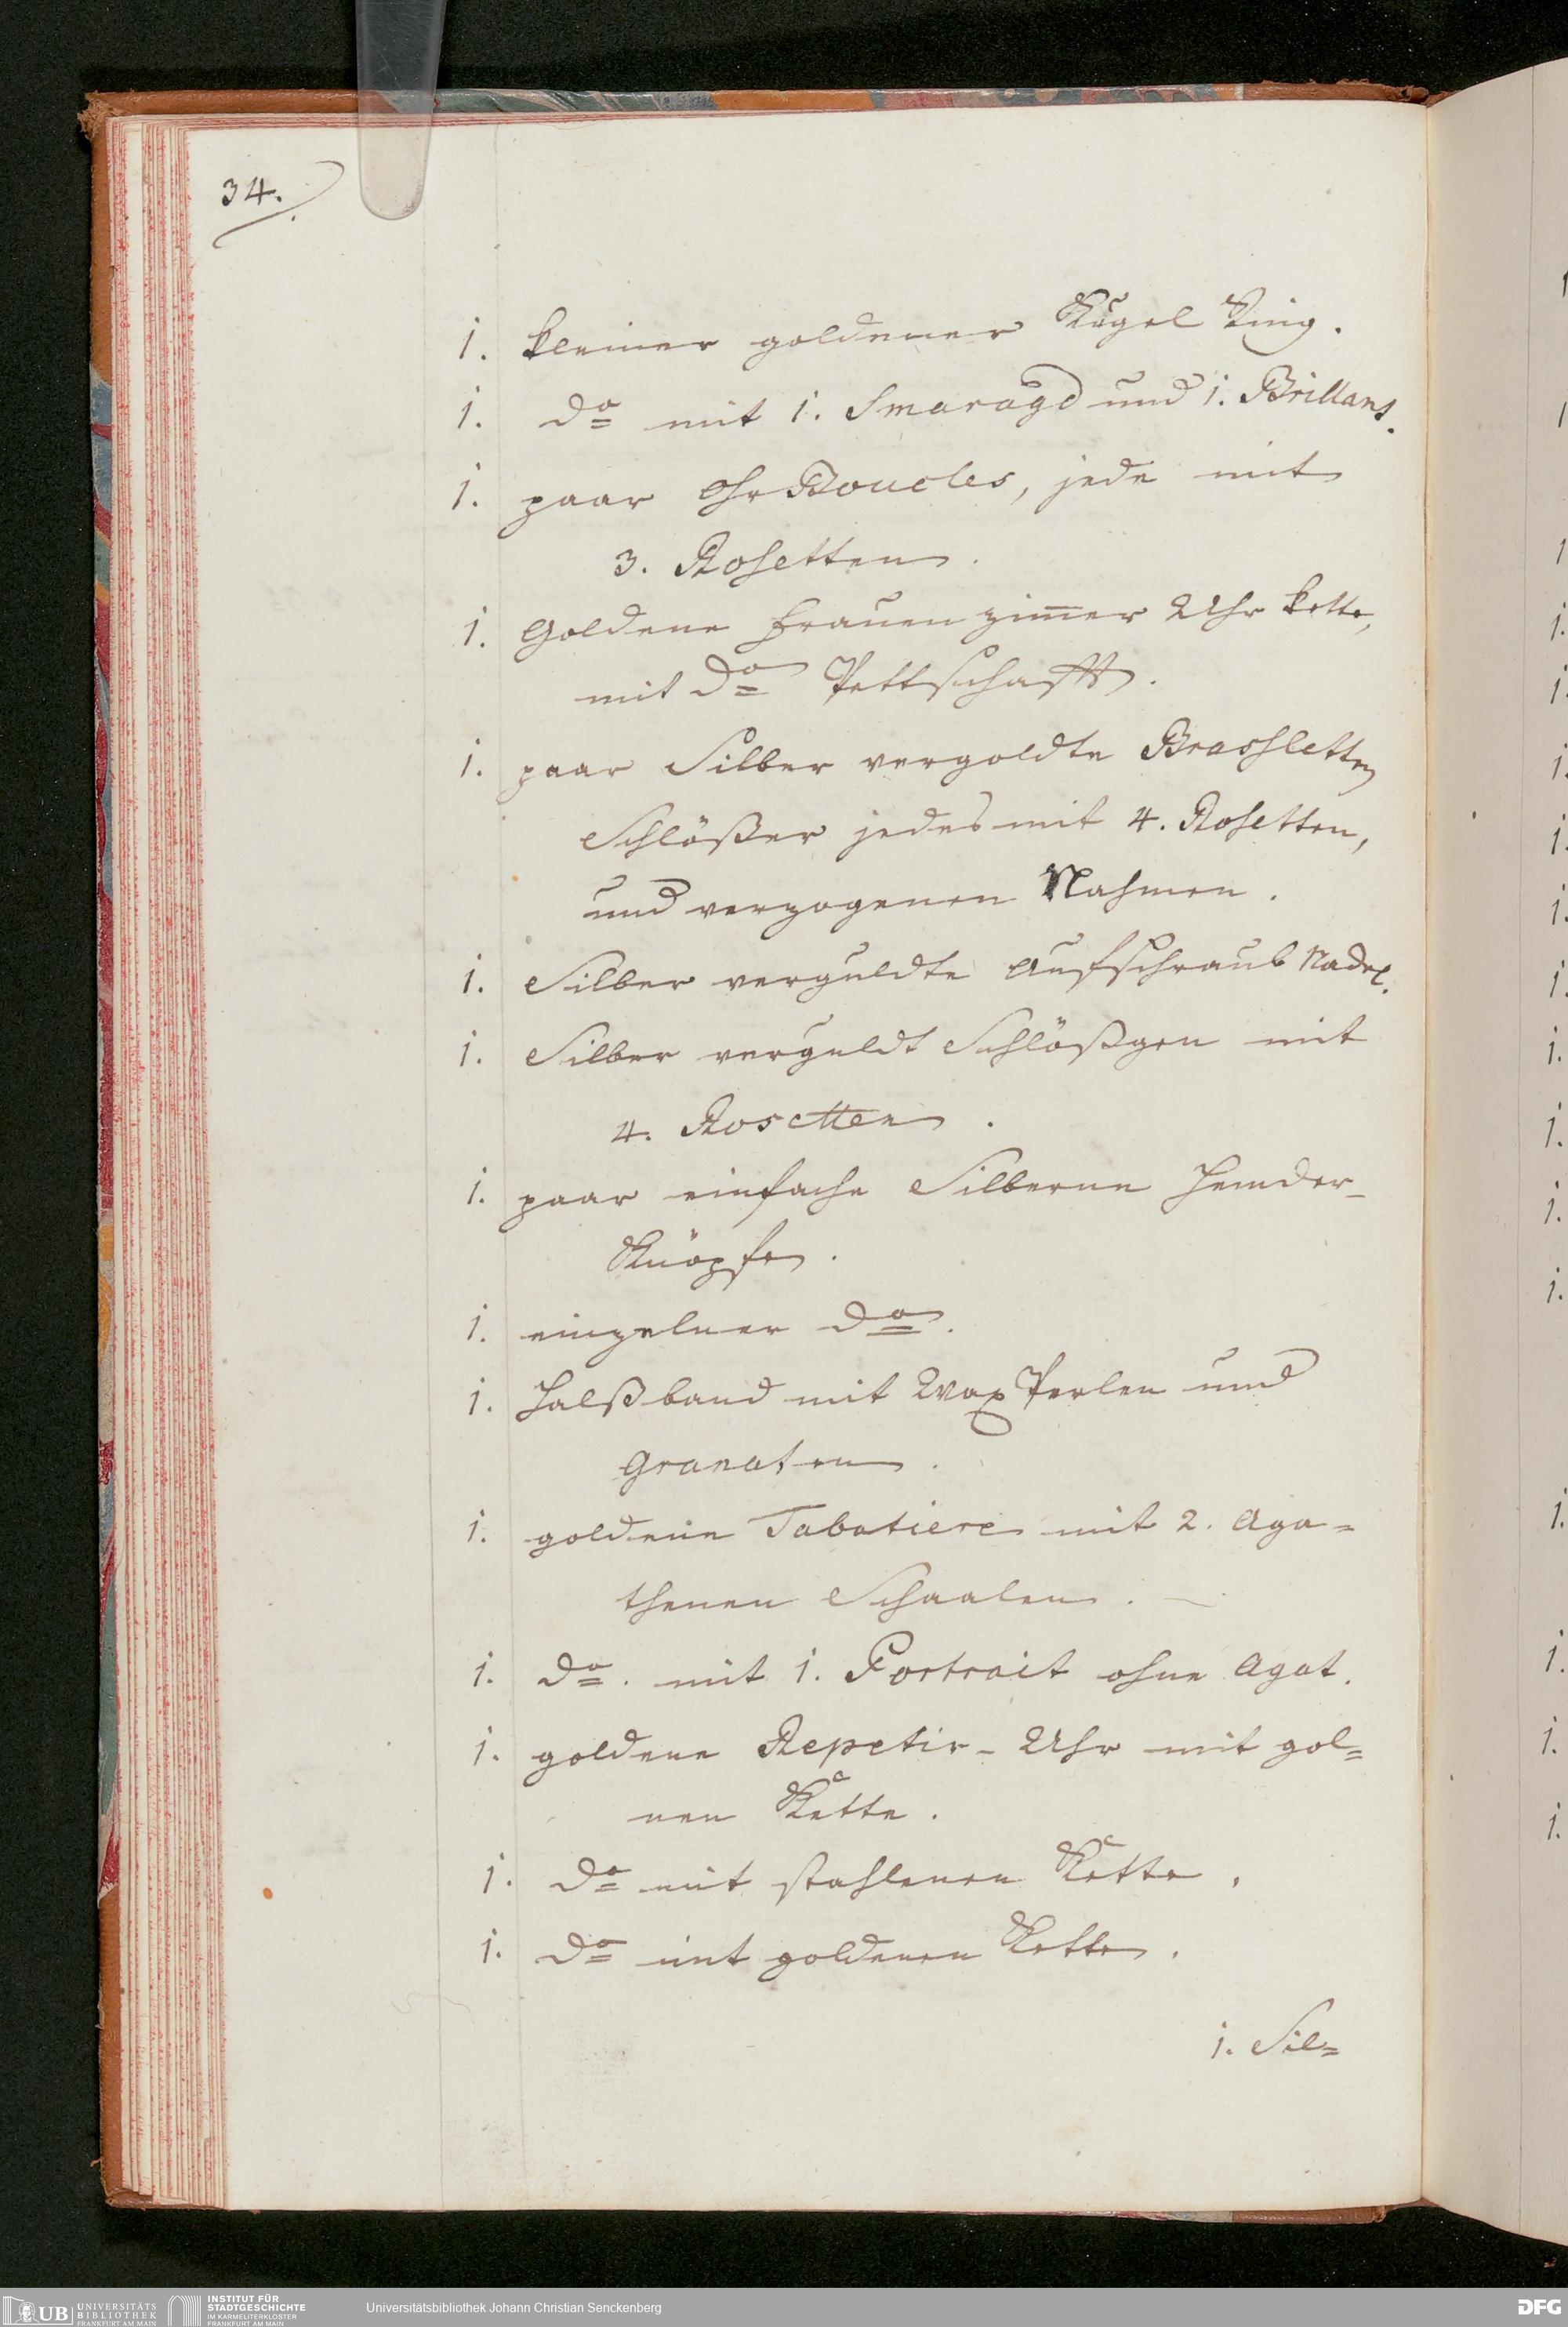 34.
1. kleiner goldener Kugel Ring.
1. do mit 1. Smaragd und 1. Brillant.
1. paar Ohr Boucles, jede mit
3. Rosetten.
1. Goldene Frauen zim̄er Uhr kette,
mit do Pettschafft.
1. paar Silber vergoldte Brasseletten
Schlößer jedes mit 4. Rosetten,
und verzogenen Nahmen.
1. Silber verguldte Aufschraub Nadel.
1. Silber verguldt Schlößgen mit
4. Rosetten.
1. paar einfache Silberne Hemder-
Knöpfe.
1. einzelner do.
1. Halßband mit Wax Perlen und
Granaten.
1. goldene Tabatiere mit 2. Aga=
thenen Schaalen.
1. do. mit 1. Portrait ohne Agat.
1. goldene Repetir-Uhr mit gol=
nen Kette.
1. do mit stahlenen Kette.
1. do mit goldenen Kette.
1. Sil=
UB UNIVERSITÄTS
BIBLIOTHEK
FRANKFURT AM MAIN
INSTITUT FÜR
STADTGESCHICHTE
IM KARMELITERKLOSTER
FRANKFURT AM MAIN
Universitätsbibliothek Johann Christian Senckenberg
DFG